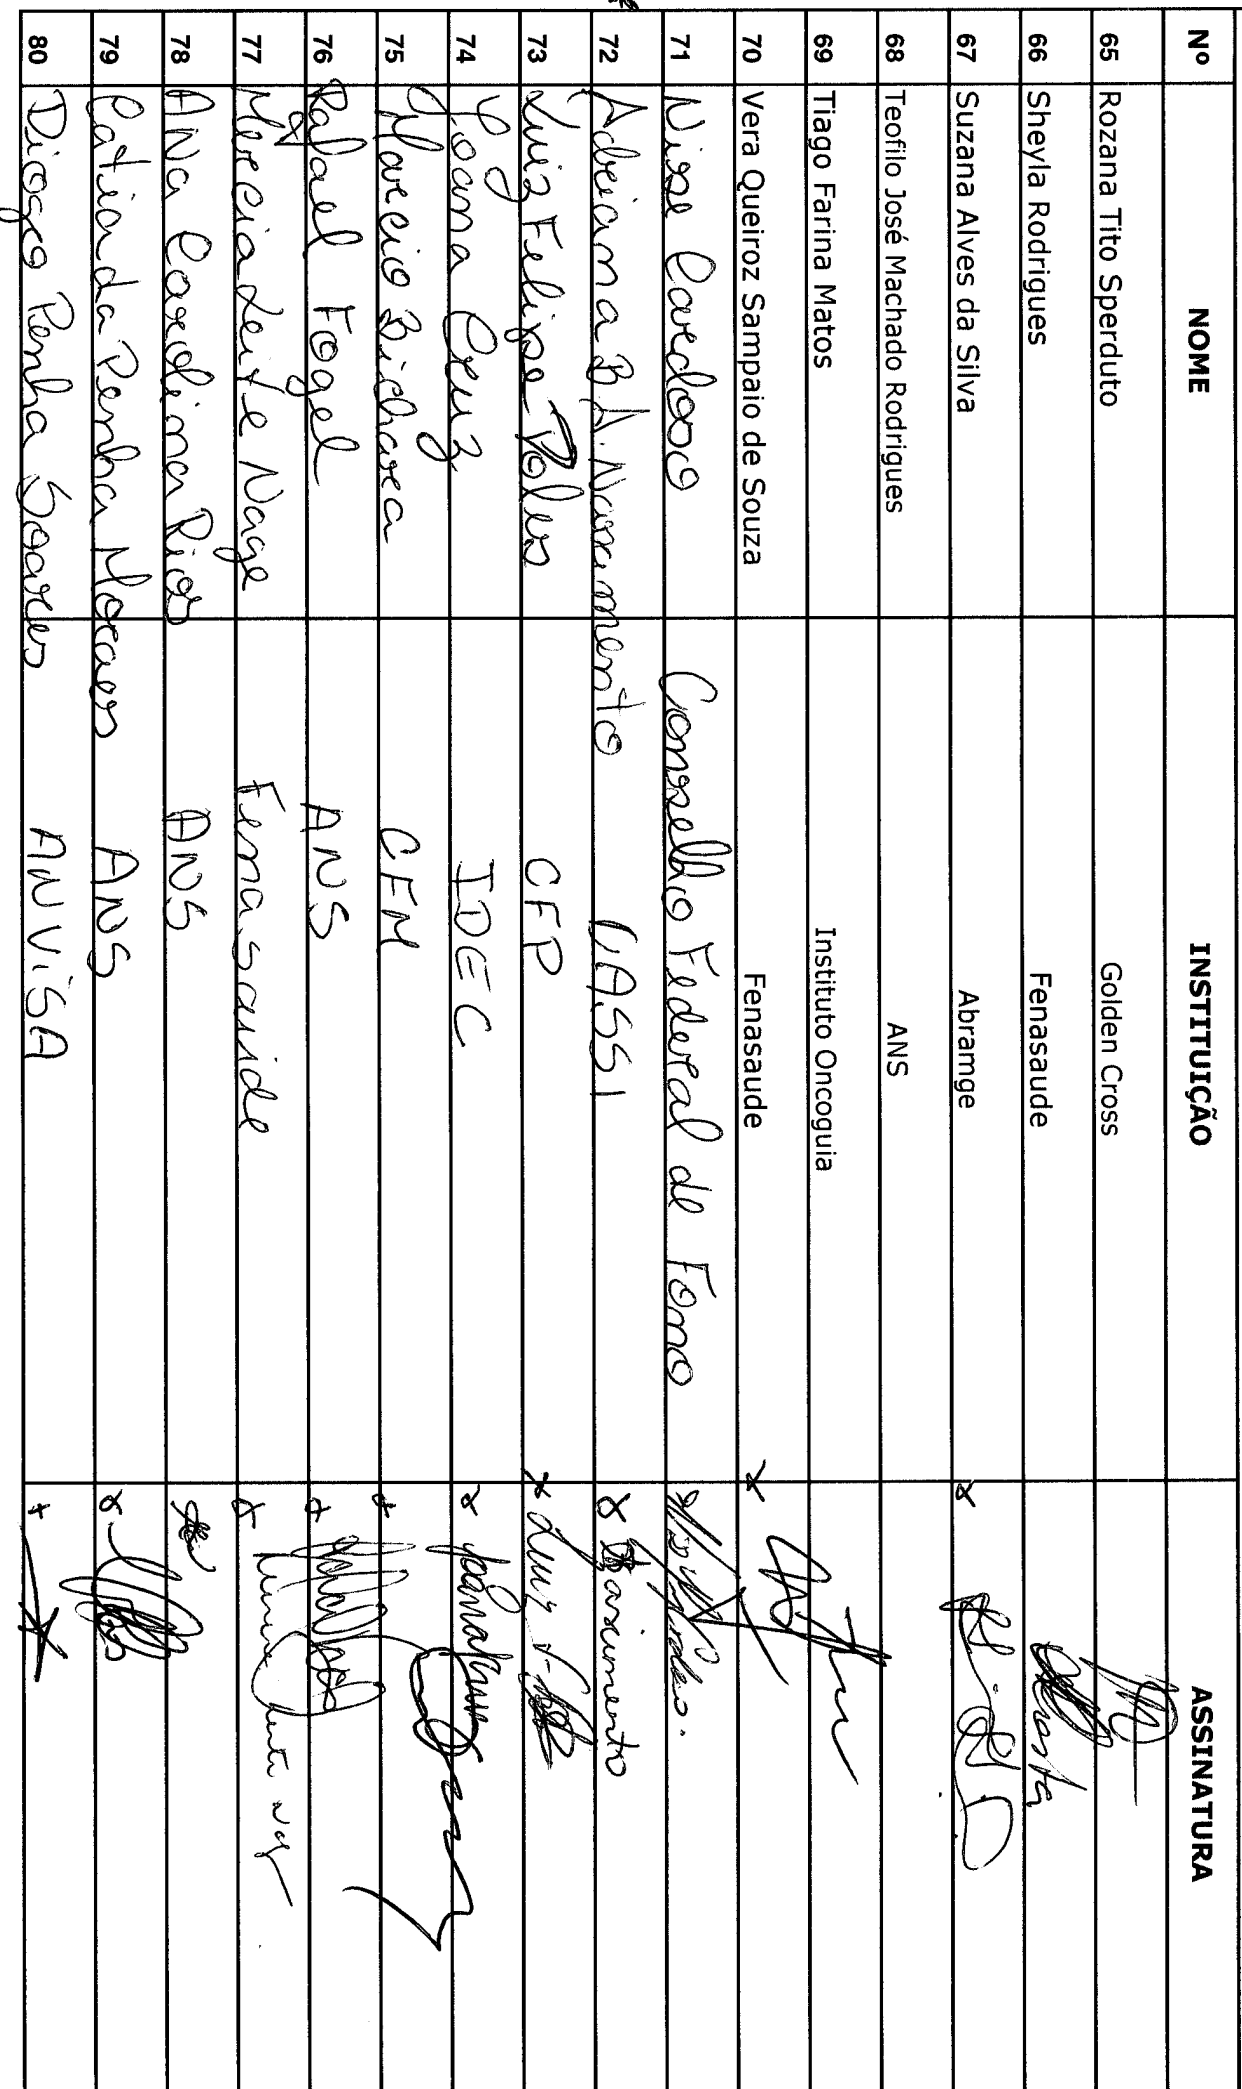 Nº NOME INSTITUIÇÃO ASSINATURA
65 Rozana Tito Sperduto Golden Cross
66 Sheyla Rodrigues Fenasaude
67 Suzana Alves da Silva Abramge
68 Teofilo José Machado Rodrigues ANS
69 Tiago Farina Matos Instituto Oncoguia
70 Vera Queiroz Sampaio de Souza Fenasaude
71 Nise Cardoso Conselho Federal de Fono
72 Adriana B. A. Nascimento CASSI Nascimento
73 Luis Felipe Polis CFP
74 Joana Cruz IDEC Joana Cruz
75 Marcio Bichara CFM
76 Rafael Fogel ANS
77 Mercia Leite Nage Fenasaúde
78 ANA Carolina Rios ANS
79 Catia da Penha Moraes ANS
80 Diogo Penha Soares ANVISA